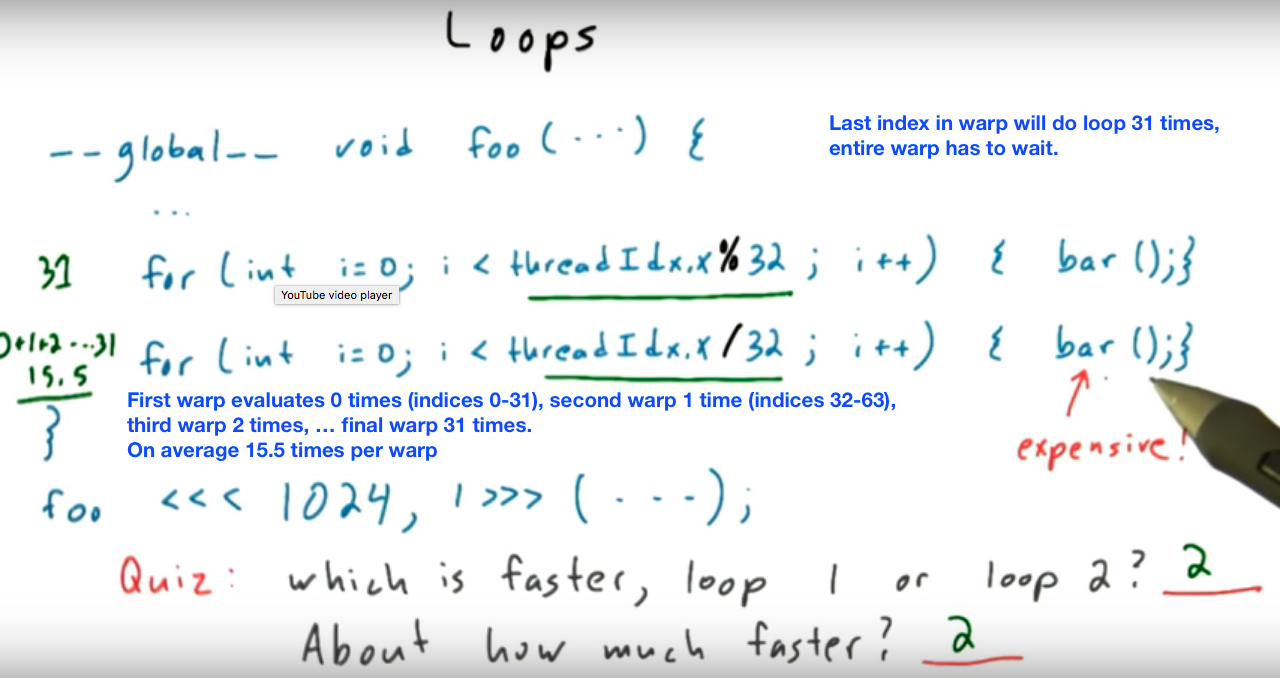 Loops
__global__ void foo (...) {
Last index in warp will do loop 31 times,
entire warp has to wait.
...
31 for (int i=0; i < threadIdx.x % 32 ; i++) { bar ();}
YouTube video player
0+1+2...31
15.5
for (int i=0; i < threadIdx.x / 32 ; i++) { bar ();}
First warp evaluates 0 times (indices 0-31), second warp 1 time (indices 32-63),
third warp 2 times, … final warp 31 times.
On average 15.5 times per warp
expensive!
}
foo <<< 1024, 1 >>> (...);
Quiz: which is faster, loop 1 or loop 2? 2
About how much faster? 2